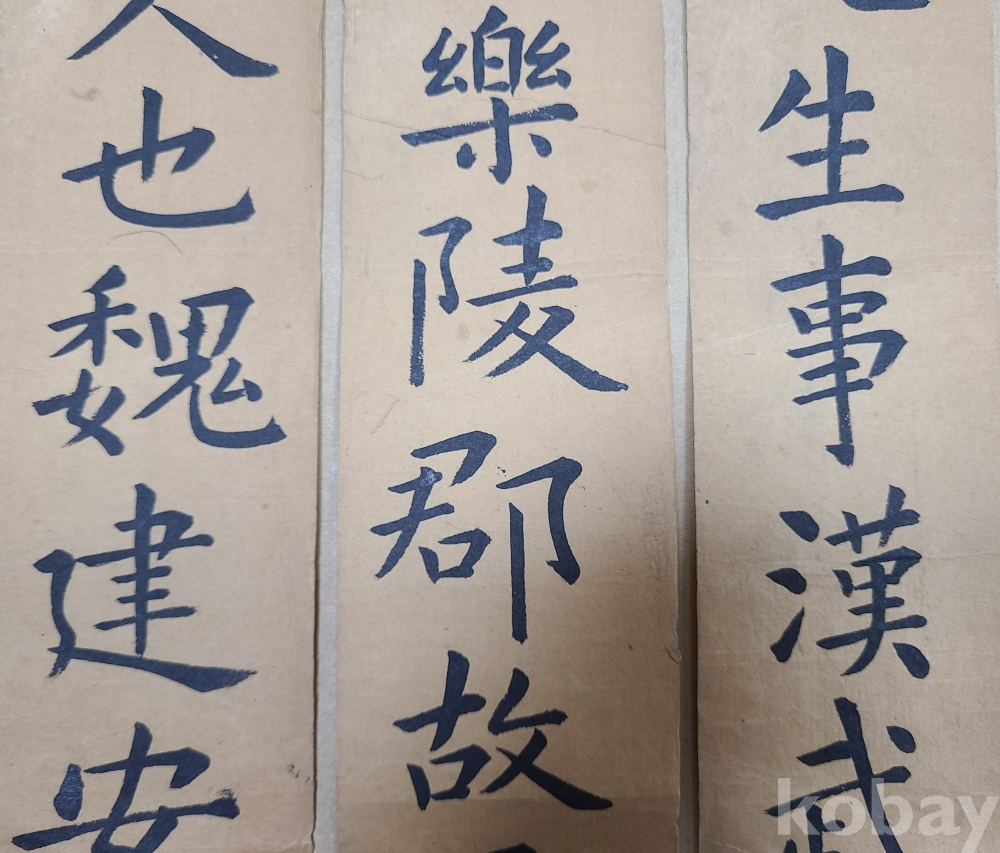 人也魏建安
樂陵郡故
生事漢武
kobay